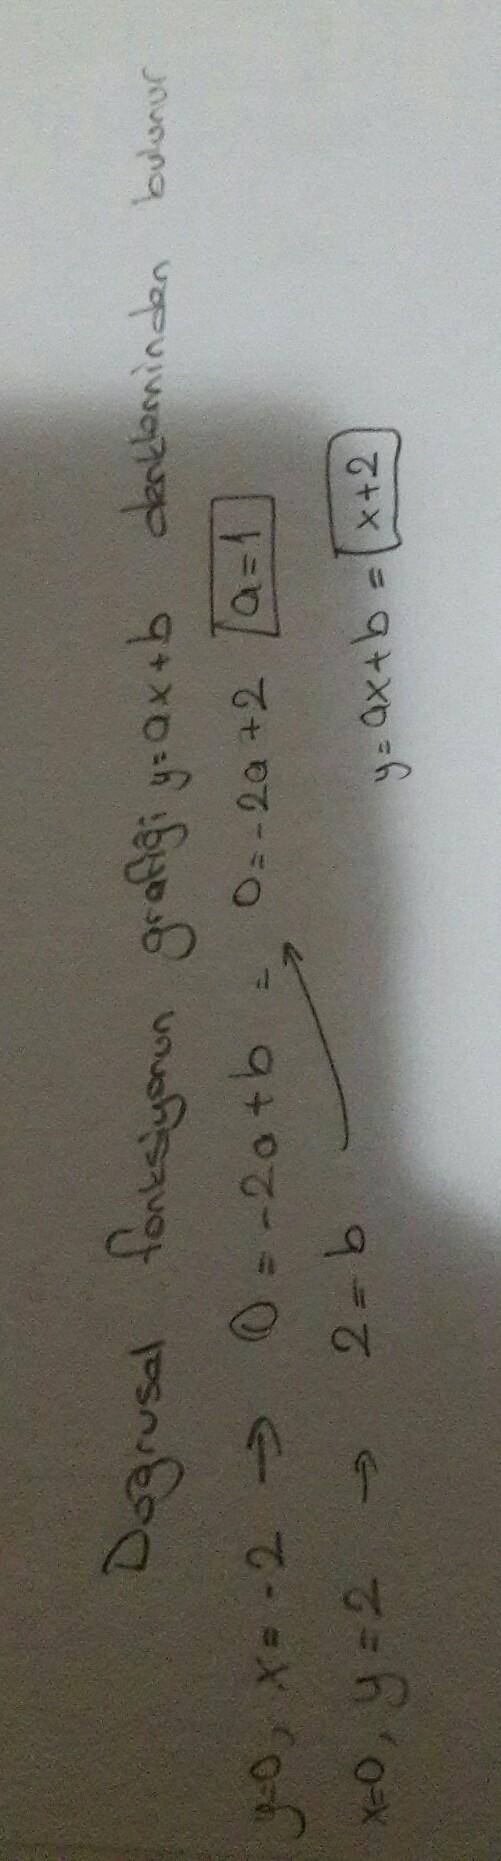 Doğrusal fonksiyonun grafiği y=ax+b denkleminden bulunur
y=0, x=-2 → 0=-2a+b = 0=-2a+2 a=1
x=0, y=2 → 2=b
y=ax+b= x+2